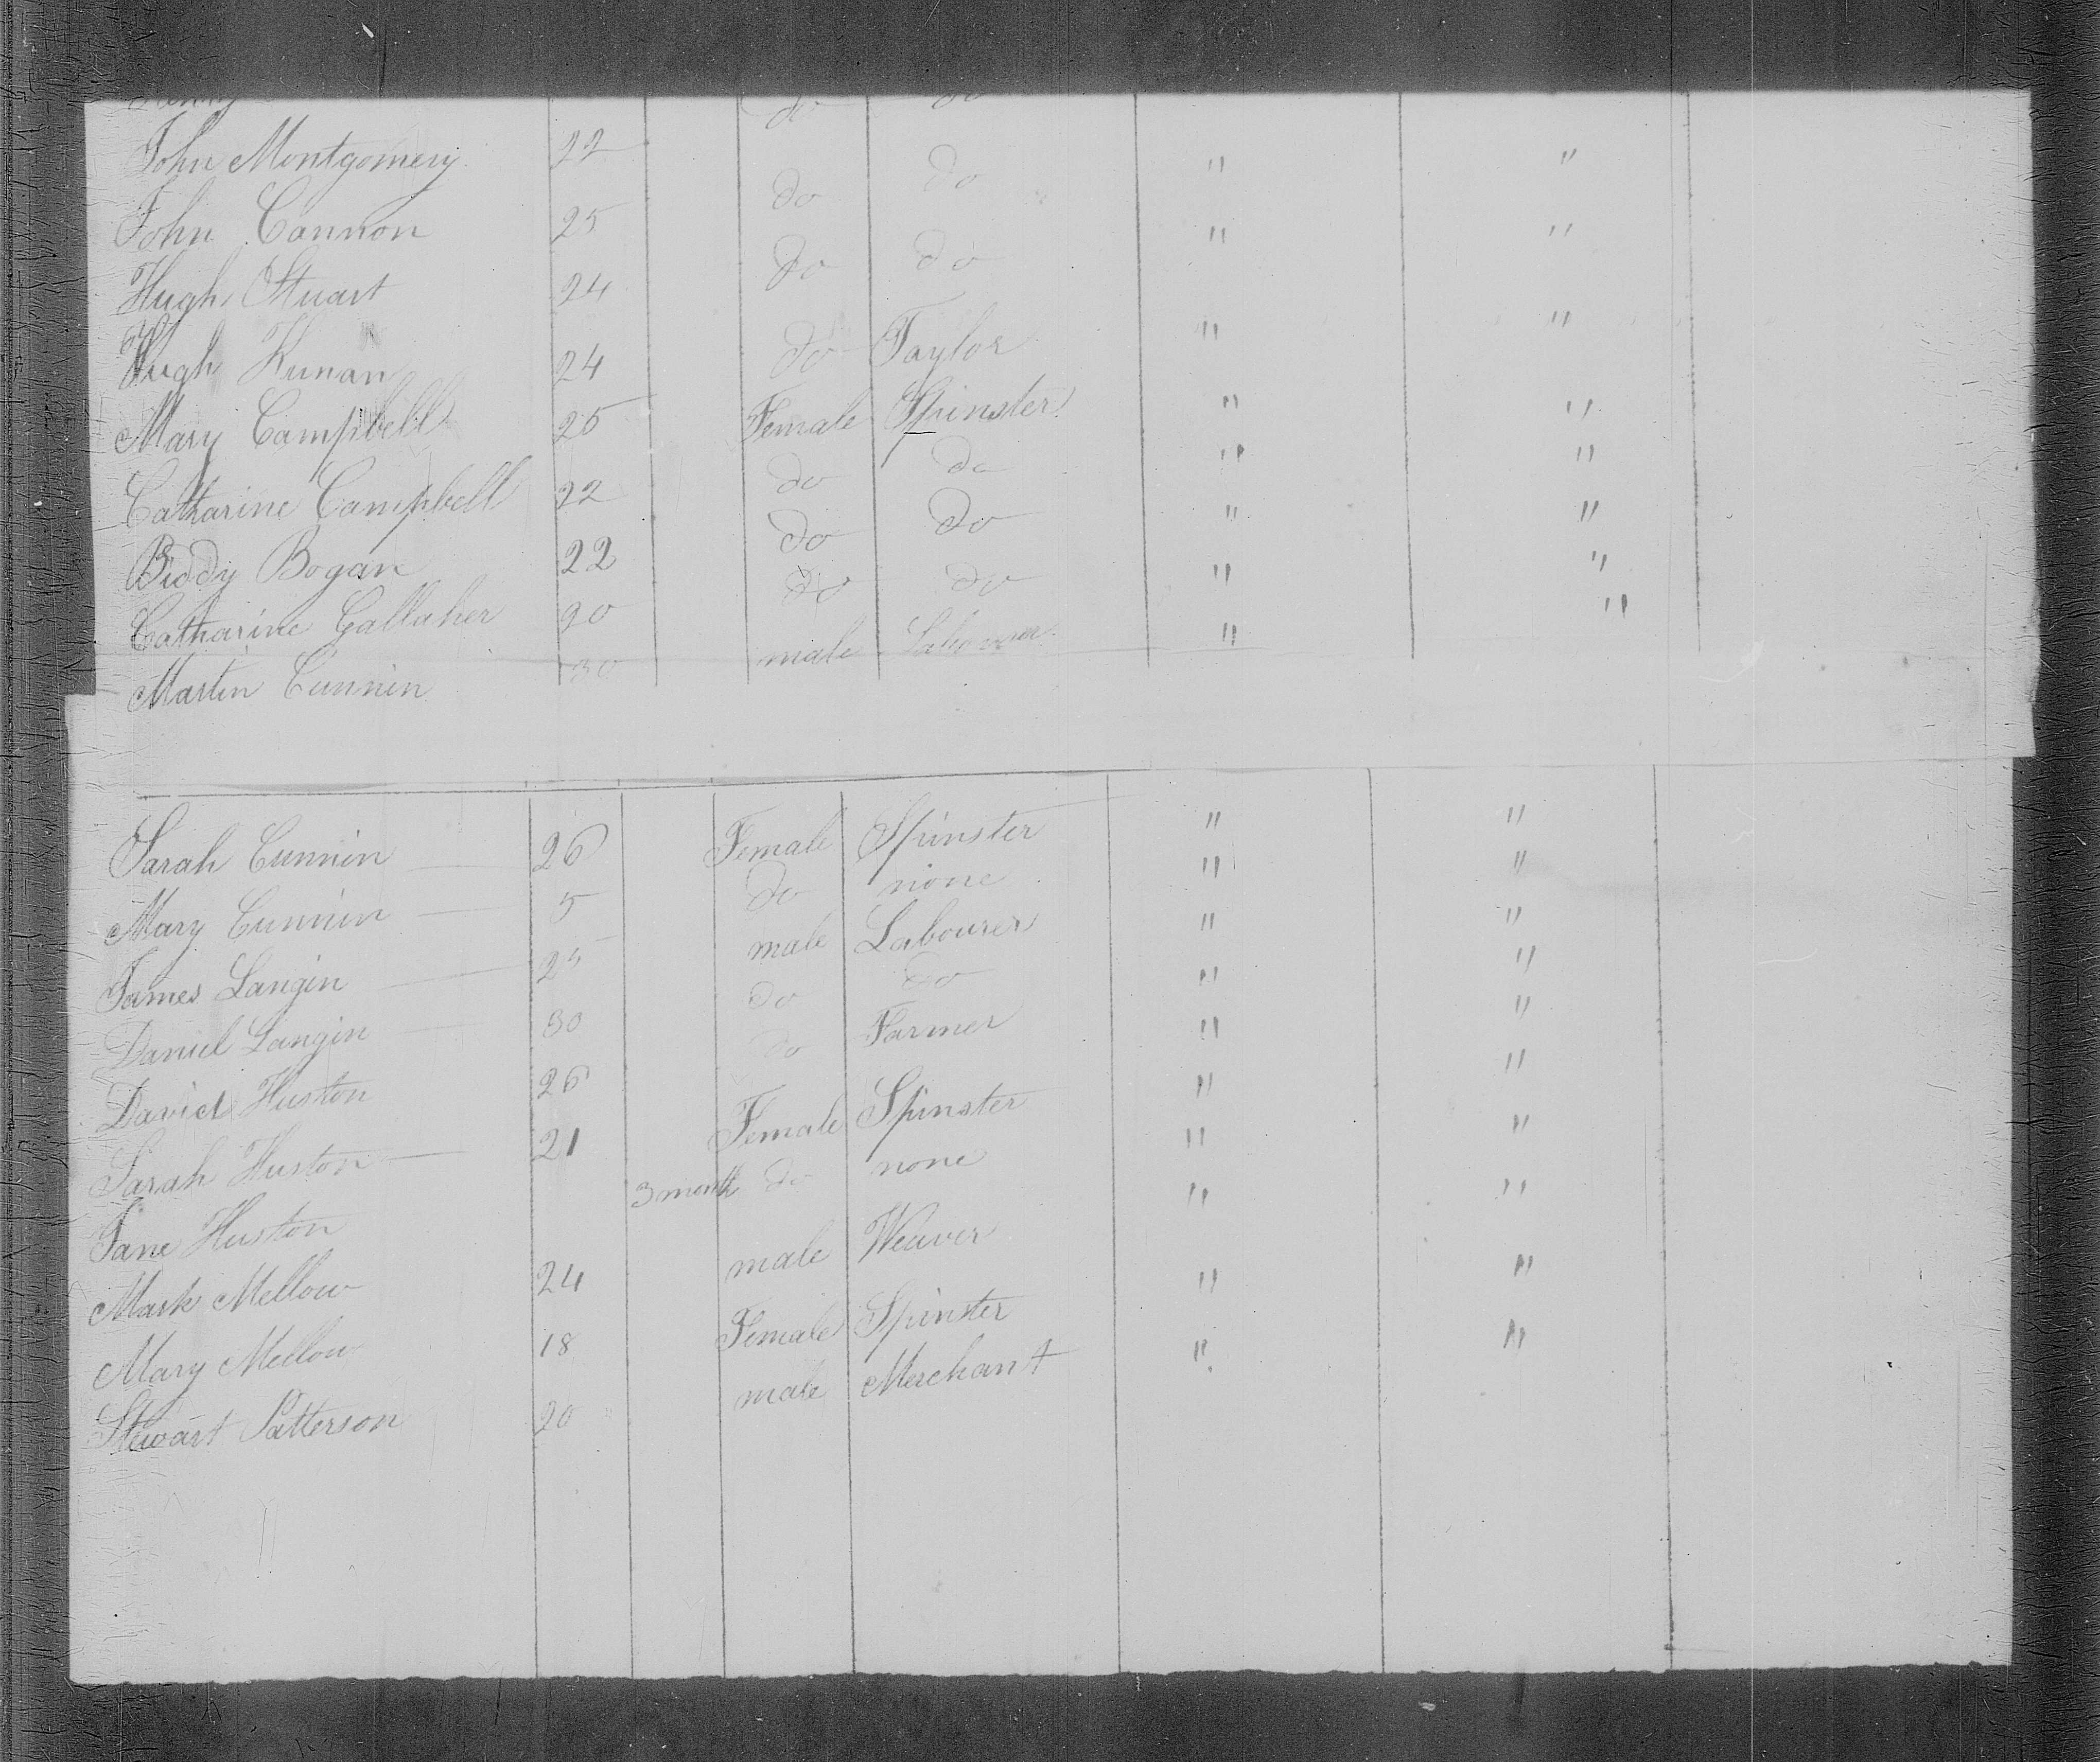 do do
John Montgomery 22 do do " "
John Cannon 25 do do " "
Hugh Stuart 24 do Taylor " "
Hugh 24 Female Spinster " "
Mary Campbell 25 do do " "
Catharine Campbell 22 do do " "
Biddy Bogan 22 do do " "
Catharine Gallaher 20 male Labourer " "
Martin Cunnin 30
Sarah Cunnin 26 Female Spinster " "
Mary Cunnin 5 do none " "
James Langin 25 male Labourer " "
Daniel Langin 30 do do " "
David Huston 26 do Farmer " "
Sarah Huston 21 Female Spinster " "
Jane Huston 3 month do none " "
Mark Mellow 24 male Weaver " "
Mary Mellow 18 Female Spinster " "
Stewart Patterson 20 male Merchant " "